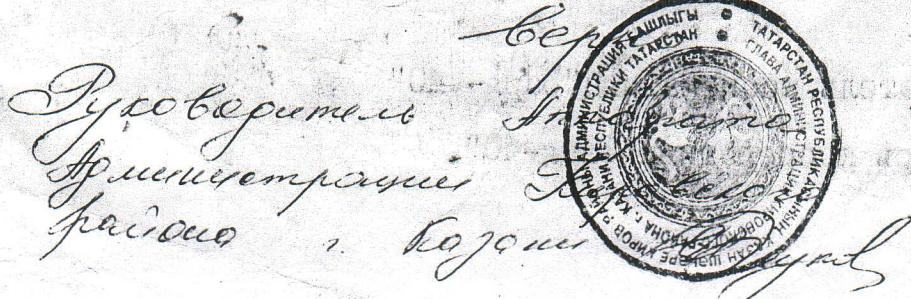 верно
Руководитель Аппарата
Администрации Кировского
района г. Казани
ТАТАРСТАН РЕСПУБЛИКАСЫНЫҢ КАЗАН ШӘҺӘРЕ КИРОВ РАЙОНЫ АДМИНИСТРАЦИЯ БАШЛЫГЫ
ГЛАВА АДМИНИСТРАЦИИ КИРОВСКОГО РАЙОНА Г. КАЗАНИ РЕСПУБЛИКИ ТАТАРСТАН